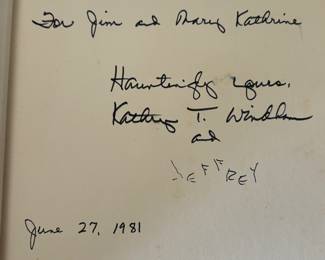 For Jim and Mary Kathrine
Hauntingly yours,
Kathryn T. Windham
and
JEFFREY
June 27, 1981